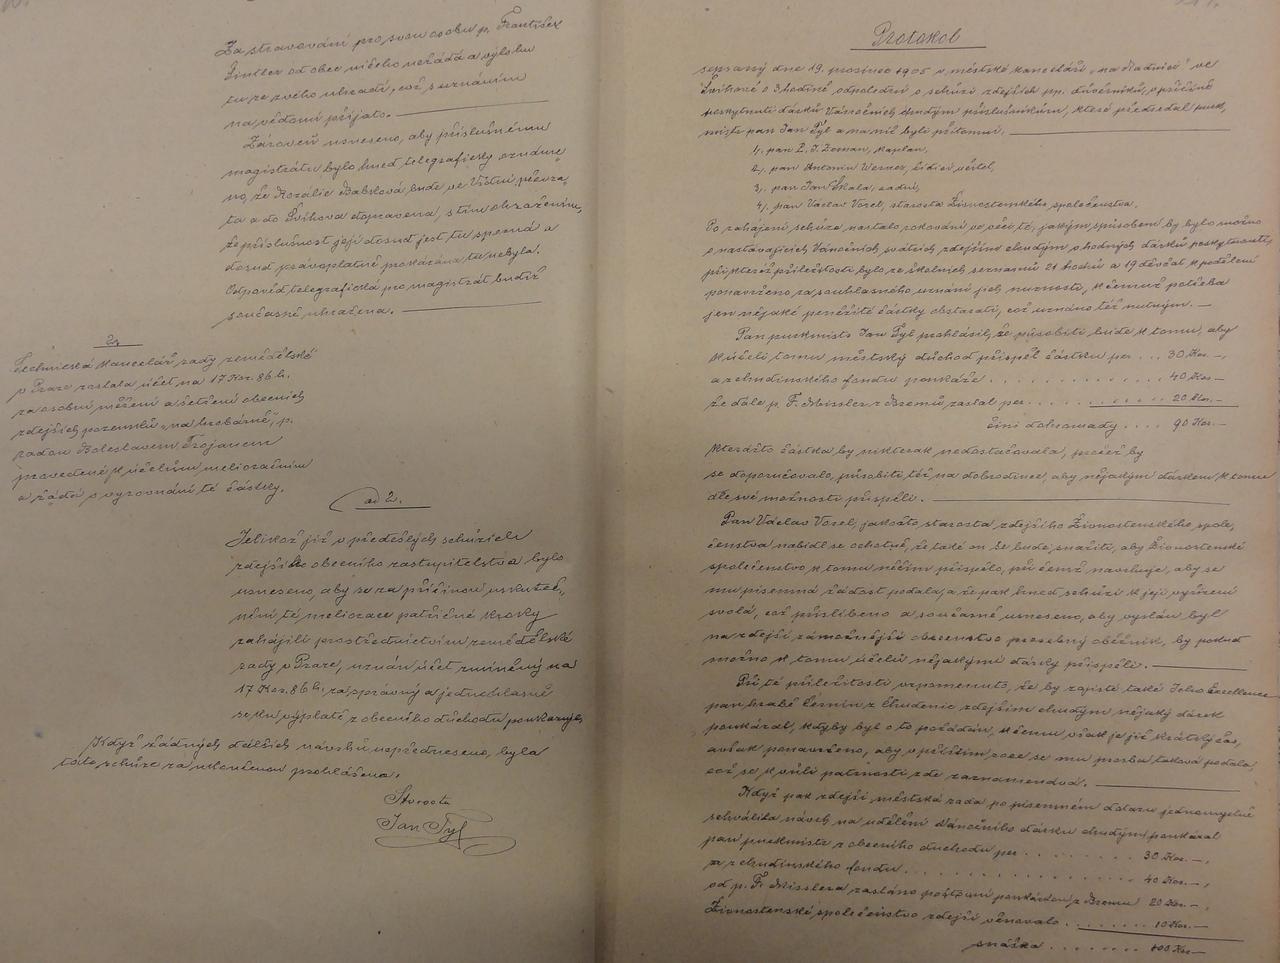 Za stravování pro svou osobu p. František
Sintler od obce ničeho nežádá a výlohu
tu ze svého uhradí, což s uznáním
na vědomí přijato.
Zároveň usneseno, aby příslušnému
magistrátu bylo hned telegraficky oznáme-
no, že Rozálie Babková bude ve Vídni převza-
ta a do Švihova dopravena, s tím ohražením,
že příslušnost její dosud jest tu sporná a
dosud právoplatně prokázána tu nebyla.
Odpověď telegrafická pro magistrát budiž
současně uhražena.
2.
Technická kancelář rady zemědělské
v Praze zaslala účet na 17 Kor. 86 h.
za osobní měření a šetření obecních
zdejších pozemků „na hrobárně", p.
radou Boleslavem Trojanem
provedené k účelům melioračním
a žádá o vyrovnání té částky.
ad 2.
Jelikož již v předešlých schůzích
zdejšího obecního zastupitelstva bylo
usneseno, aby se za příčinou uskuteč-
nění té meliorace patřičné kroky
zahájili prostřednictvím zemědělské
rady v Praze, uznán účet zmíněný na
17 Kor. 86 h. za správný a jednohlasně
se ku výplatě z obecního důchodu poukazuje.
Když žádných dalších návrhů nepředneseno, byla
tato schůze za ukončenou prohlášena.
Starosta
Jan Tyl
Protokol
sepsaný dne 19. prosince 1905 v městské kanceláři „na Radnici" ve
Švihově o 3 hodině odpoledni o schůzi zdejších pp. důvěrníků, v příčině
poskytnutí dárků Vánočních chudým příslušníkům, které předsedal purk-
mistr pan Jan Tyl a na níž byli přítomni.
1). pan P. J. Zeman, kaplan,
2). pan Antonín Werner, řídící učitel,
3). pan Jan Škala, radní,
4). pan Václav Vosel, starosta Živnostenského společenstva.
Po zahájení schůze nastalo rokování ve věci té, jakým způsobem by bylo možno
o nastávajících Vánočních svátcích zdejším chudým vhodných dárků poskytnouti,
při kteréž příležitosti bylo ze školních seznamů 21 hochů a 19 děvčat k podělení
ponavrženo za souhlasného uznání jich nuznosti, k čemuž potřeba
jen nějaké peněžité částky obstarati, což uznáno též nutným.
Pan purkmistr Jan Tyl prohlásil, že působiti bude k tomu, aby
k účeli tomu městský důchod přispěl částku per ... 30 Kor. —,
a z chudinského fondu poukáže ............ 40 Kor. —
že dále p. F. Missler z Bremů zaslal per ........ 20 Kor. —
činí dohromady .... 90 Kor. —
kterážto částka by nikterak nedostačovala, pročež by
se doporučovalo, působiti též na dobrodince, aby nějakým dárkem k tomu
dle své možnosti přispěli.
Pan Václav Vosel, jakožto starosta zdejšího Živnostenského spole-
čenstva nabídl se ochotně, že také on se bude snažiti, aby Živnostenské
společenstvo k tomu něčím přispělo, při čemž navrhuje, aby se
mu písemná žádost podala, a že pak hned schůzi k její vyřízení
svolá, což přislíbeno a současně usneseno, aby vyslán byl
na zdejší zámožnější obecenstvo prosebný oběžník, by pokud
možno k tomu účelů nějakými dárky přispěli.
Při té příležitosti vzpomenuto, že by zajisté také Jeho Excellence
pan hrabě Černín z Chudenic zdejším chudým nějaký dárek
poukázal, kdyby byl o to požádán, k čemu však je již krátký čas,
avšak ponavrženo, aby v příštím roce se mu prosba taková podala,
což se k vůli patrnosti zde zaznamenává.
Když pak zdejší městská rada po písemném dotazu jednomyslně
schválila návrh na udělení Vánočního dárku chudým, poukázal
pan purkmistr z obecního důchodu per ........ 30 Kor. —,
a z chudinského fondu ................ 40 Kor. —,
od p. F. Misslera zasláno poštovní poukázkou z Bremů 20 Kor. —,
Živnostenské společenstvo zdejší věnovalo ........ 10 Kor. —
snáška ........ 100 Kor. —